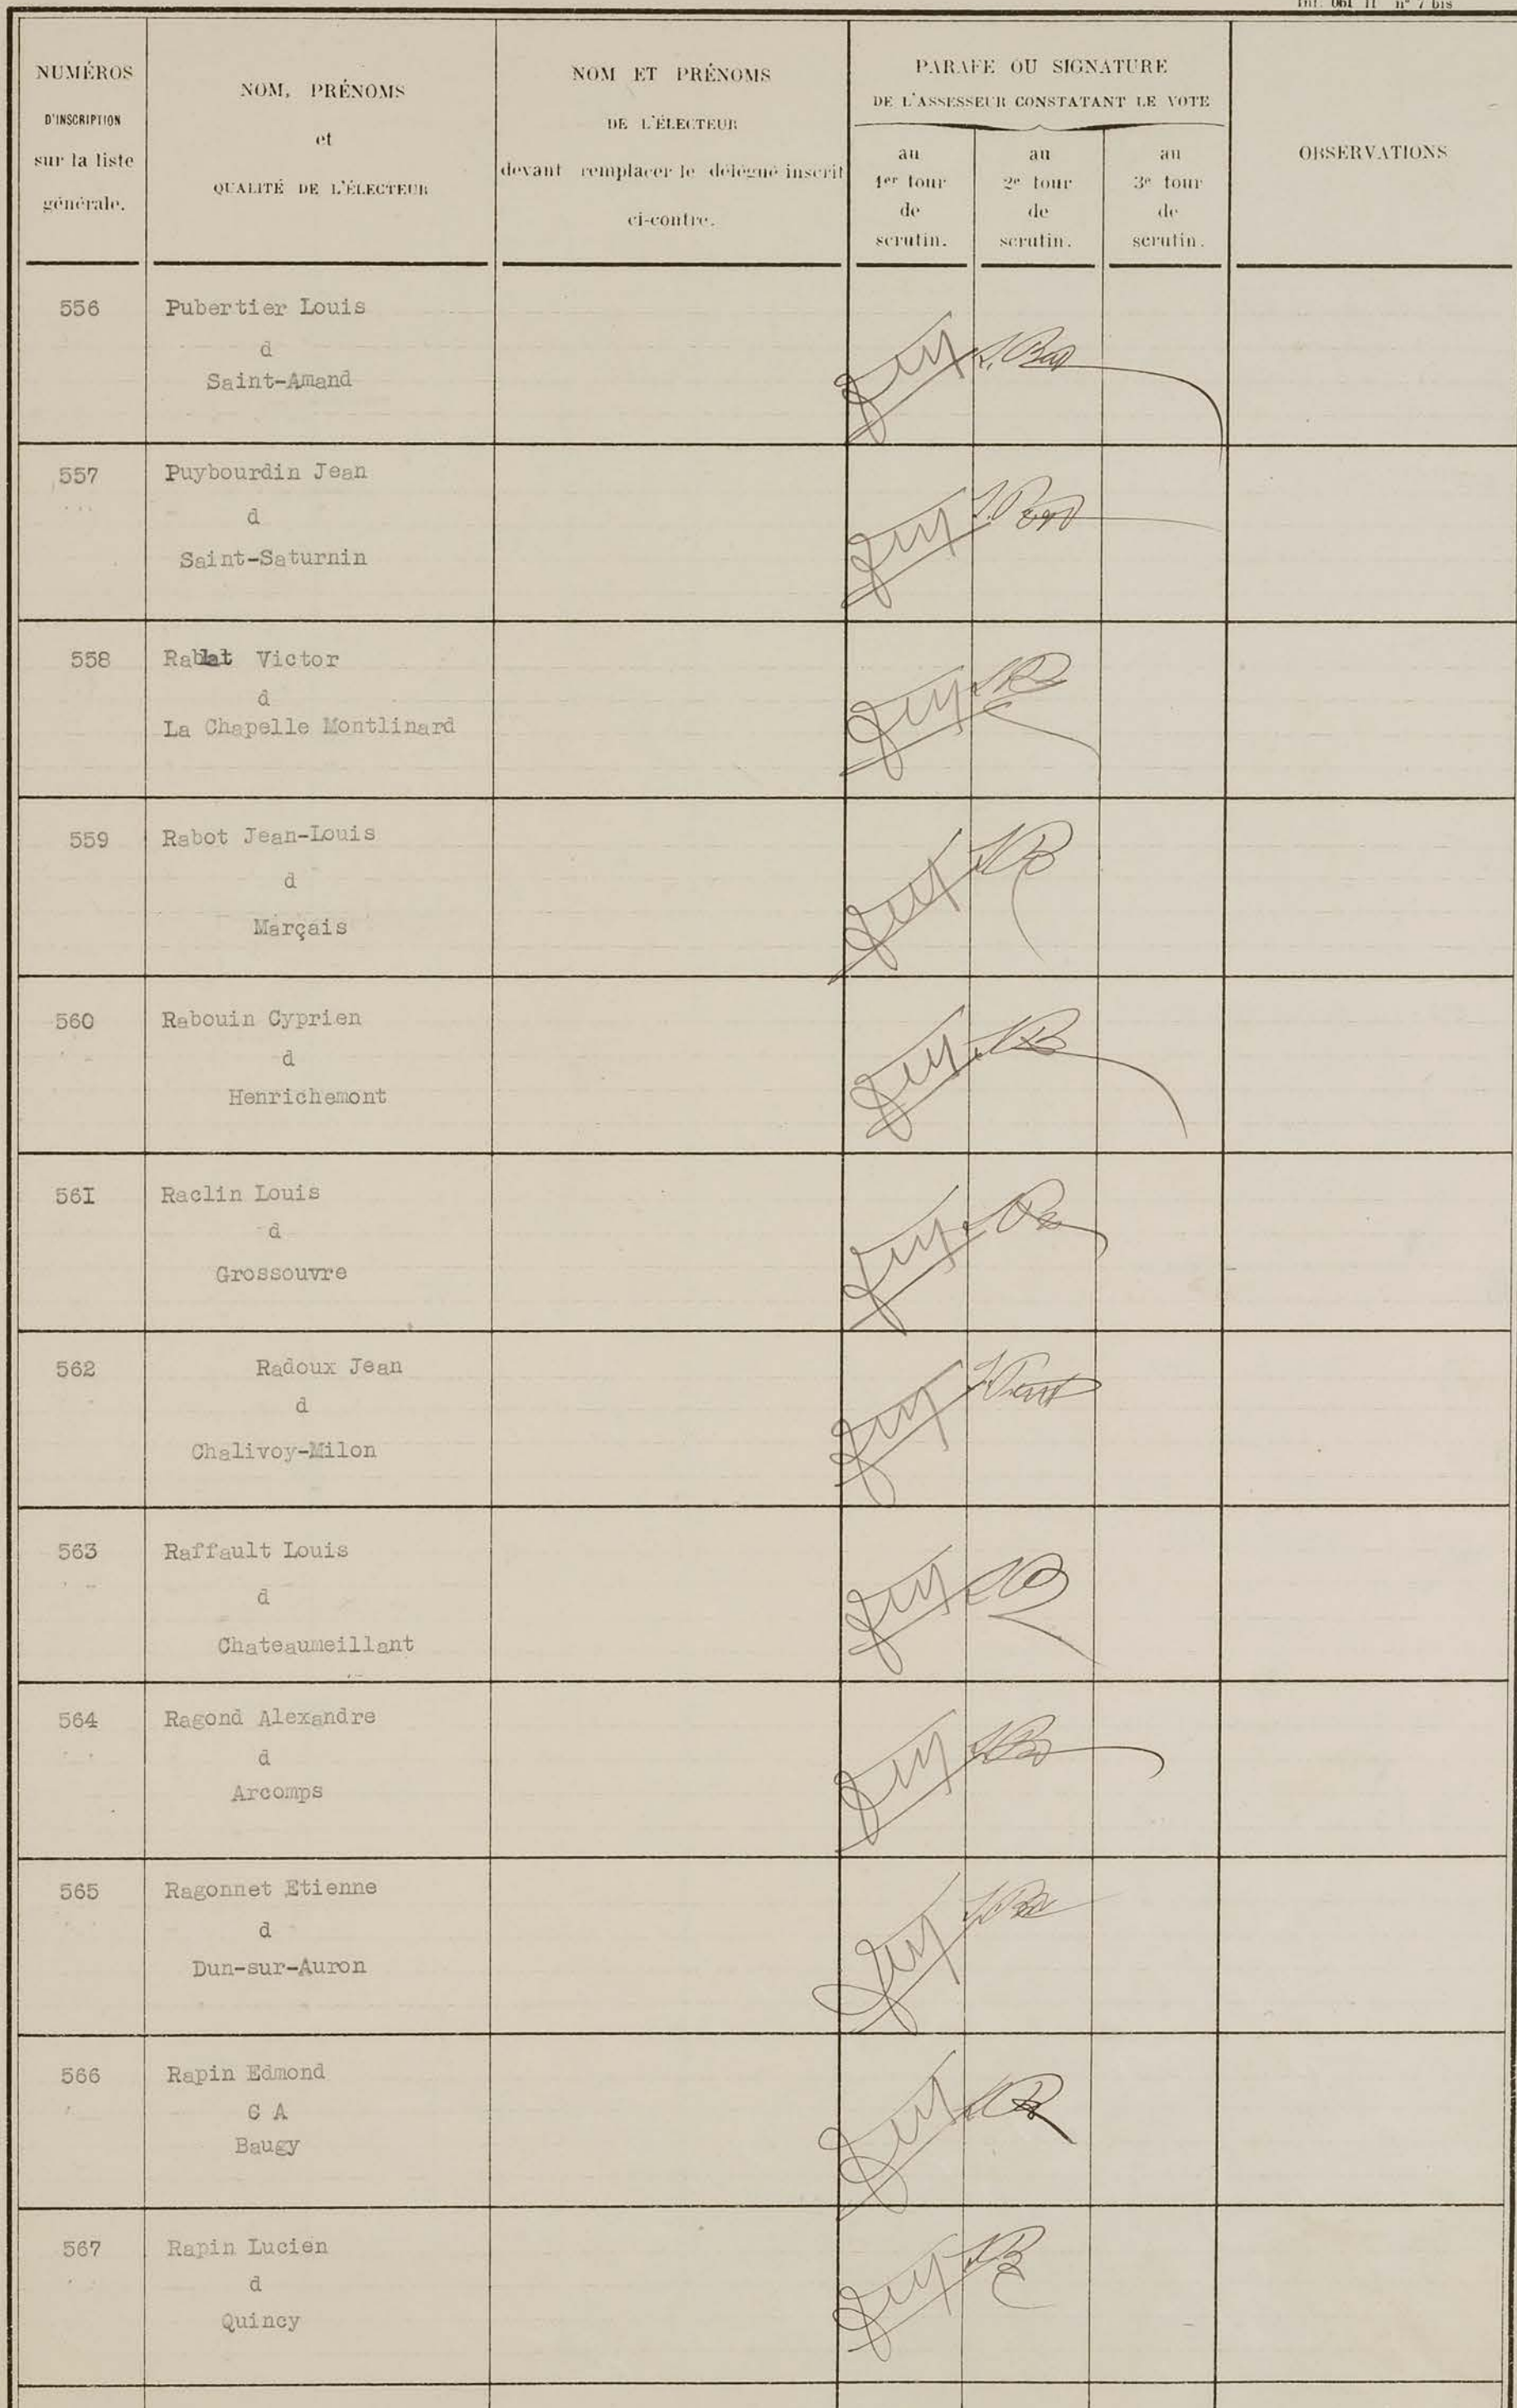 Int. 061 11 n° 7 bis
NUMÉROS
D'INSCRIPTION
sur la liste
générale.
NOM, PRÉNOMS
et
QUALITÉ DE L'ÉLECTEUR
NOM ET PRÉNOMS
DE L'ÉLECTEUR
devant remplacer le délégué inscrit
ci-contre.
PARAFE OU SIGNATURE
DE L'ASSESSEUR CONSTATANT LE VOTE
au
1er tour
de
scrutin.
au
2e tour
de
scrutin.
au
3e tour
de
scrutin.
OBSERVATIONS
556
Pubertier Louis
d
Saint-Amand
557
Puybourdin Jean
d
Saint-Saturnin
558
Rablat Victor
d
La Chapelle Montlinard
559
Rabot Jean-Louis
d
Marçais
560
Rabouin Cyprien
d
Henrichemont
56I
Raclin Louis
d
Grossouvre
562
Radoux Jean
d
Chalivoy-Milon
563
Raffault Louis
d
Chateaumeillant
564
Ragond Alexandre
d
Arcomps
565
Ragonnet Etienne
d
Dun-sur-Auron
566
Rapin Edmond
C A
Baugy
567
Rapin Lucien
d
Quincy